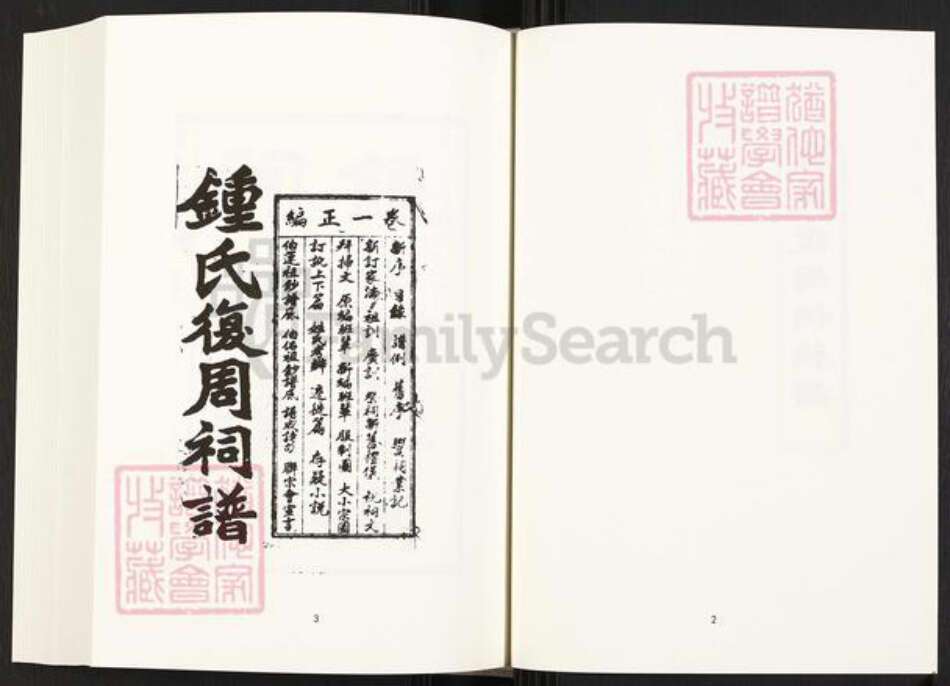 猶他家
譜學會
收藏
2
卷一正編
新序 目錄 譜例 舊序 興祠業記
新訂家法 祖訓 廣訓 祭祠新舊禮儀 祝祠文
拜掃文 原編班輩 新編班輩 服制圖 大小宗圖
訂訛上下篇 姓氏考辨 遠魏篇 存疑小說
伯運祖鈔譜底 伯佑祖鈔譜底 譜成詩 聯宗會宣言
鍾氏復周祠譜
猶他家
譜學會
收藏
3
FamilySearch